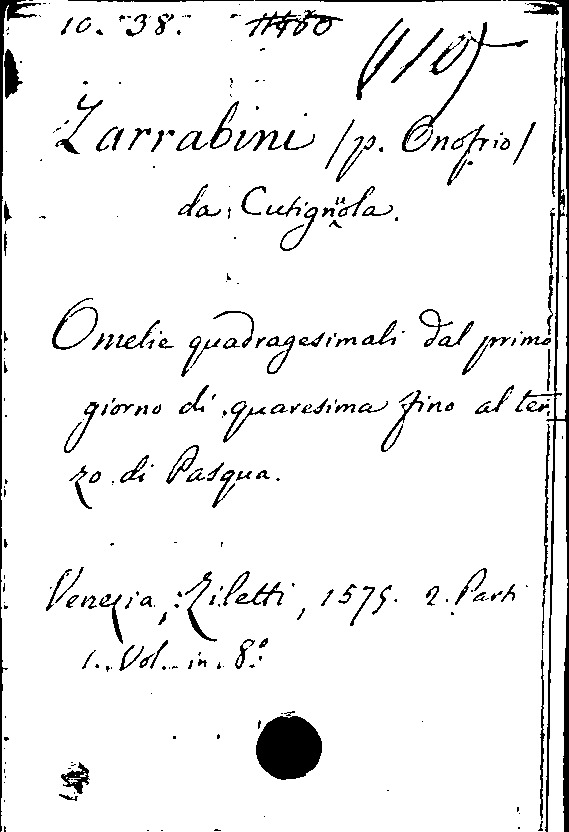 10. 38.
Zarrabini /p. Onofrio/
da Cutignuola.
Omelie quadragesimali dal primo
giorno di quaresima fino al ter
zo di Pasqua.
Venezia, Ziletti, 1575. 2. Parti
1. Vol. in. 8.º